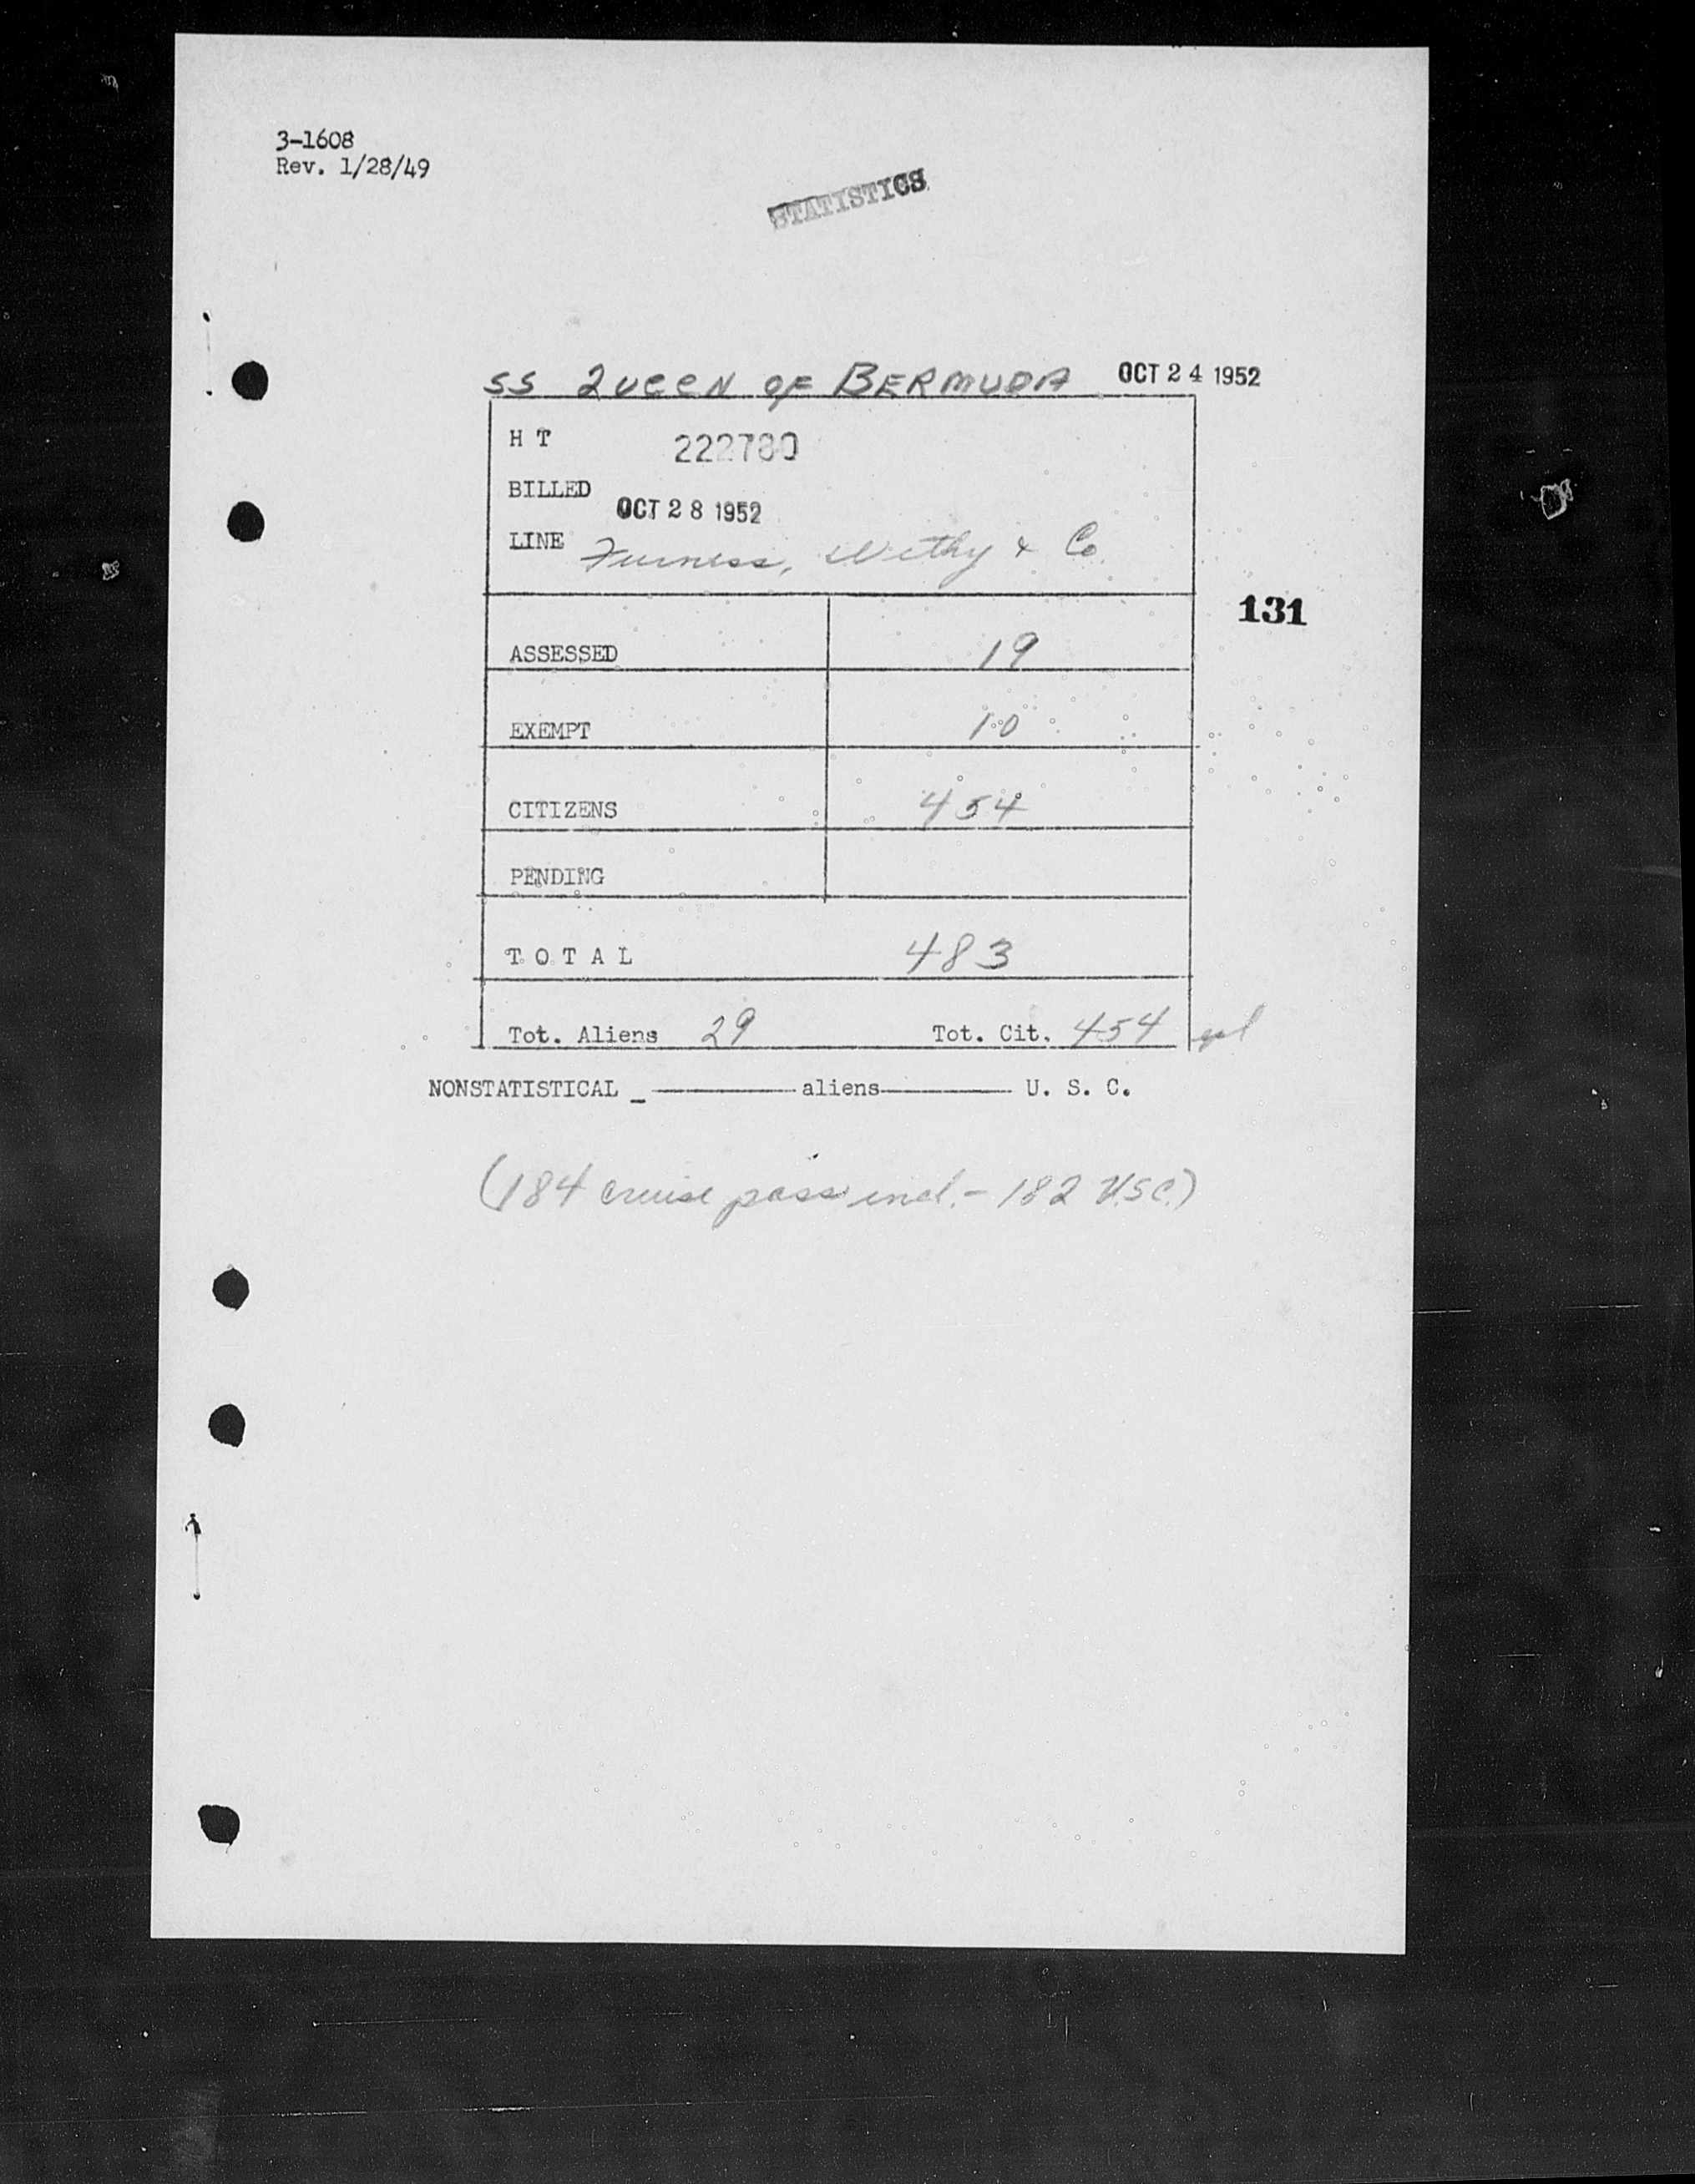 3-1608
Rev. 1/28/49
STATISTICS
SS QUEEN OF BERMUDA OCT 24 1952
H T 222780
BILLED
OCT 28 1952
LINE Furness, Withy & Co.
131
ASSESSED 19
EXEMPT 10
CITIZENS 454
PENDING
T O T A L 483
Tot. Aliens 29 Tot. Cit. 454
NONSTATISTICAL _ ———— aliens ———— U. S. C.
(184 cruise pass incl. - 182 U.S.C.)